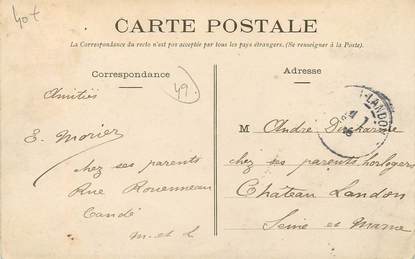 40+
CARTE POSTALE
La Correspondance du recto n'est pas acceptée par tous les pays étrangers. (Se renseigner à la Poste).
Correspondance
Amitiés
49.
E. Morier
chez ses parents
Rue
Candé
M. et L
Adresse
LANDON
M André
chez ses parents horlogers
Château Landon
Seine et Marne